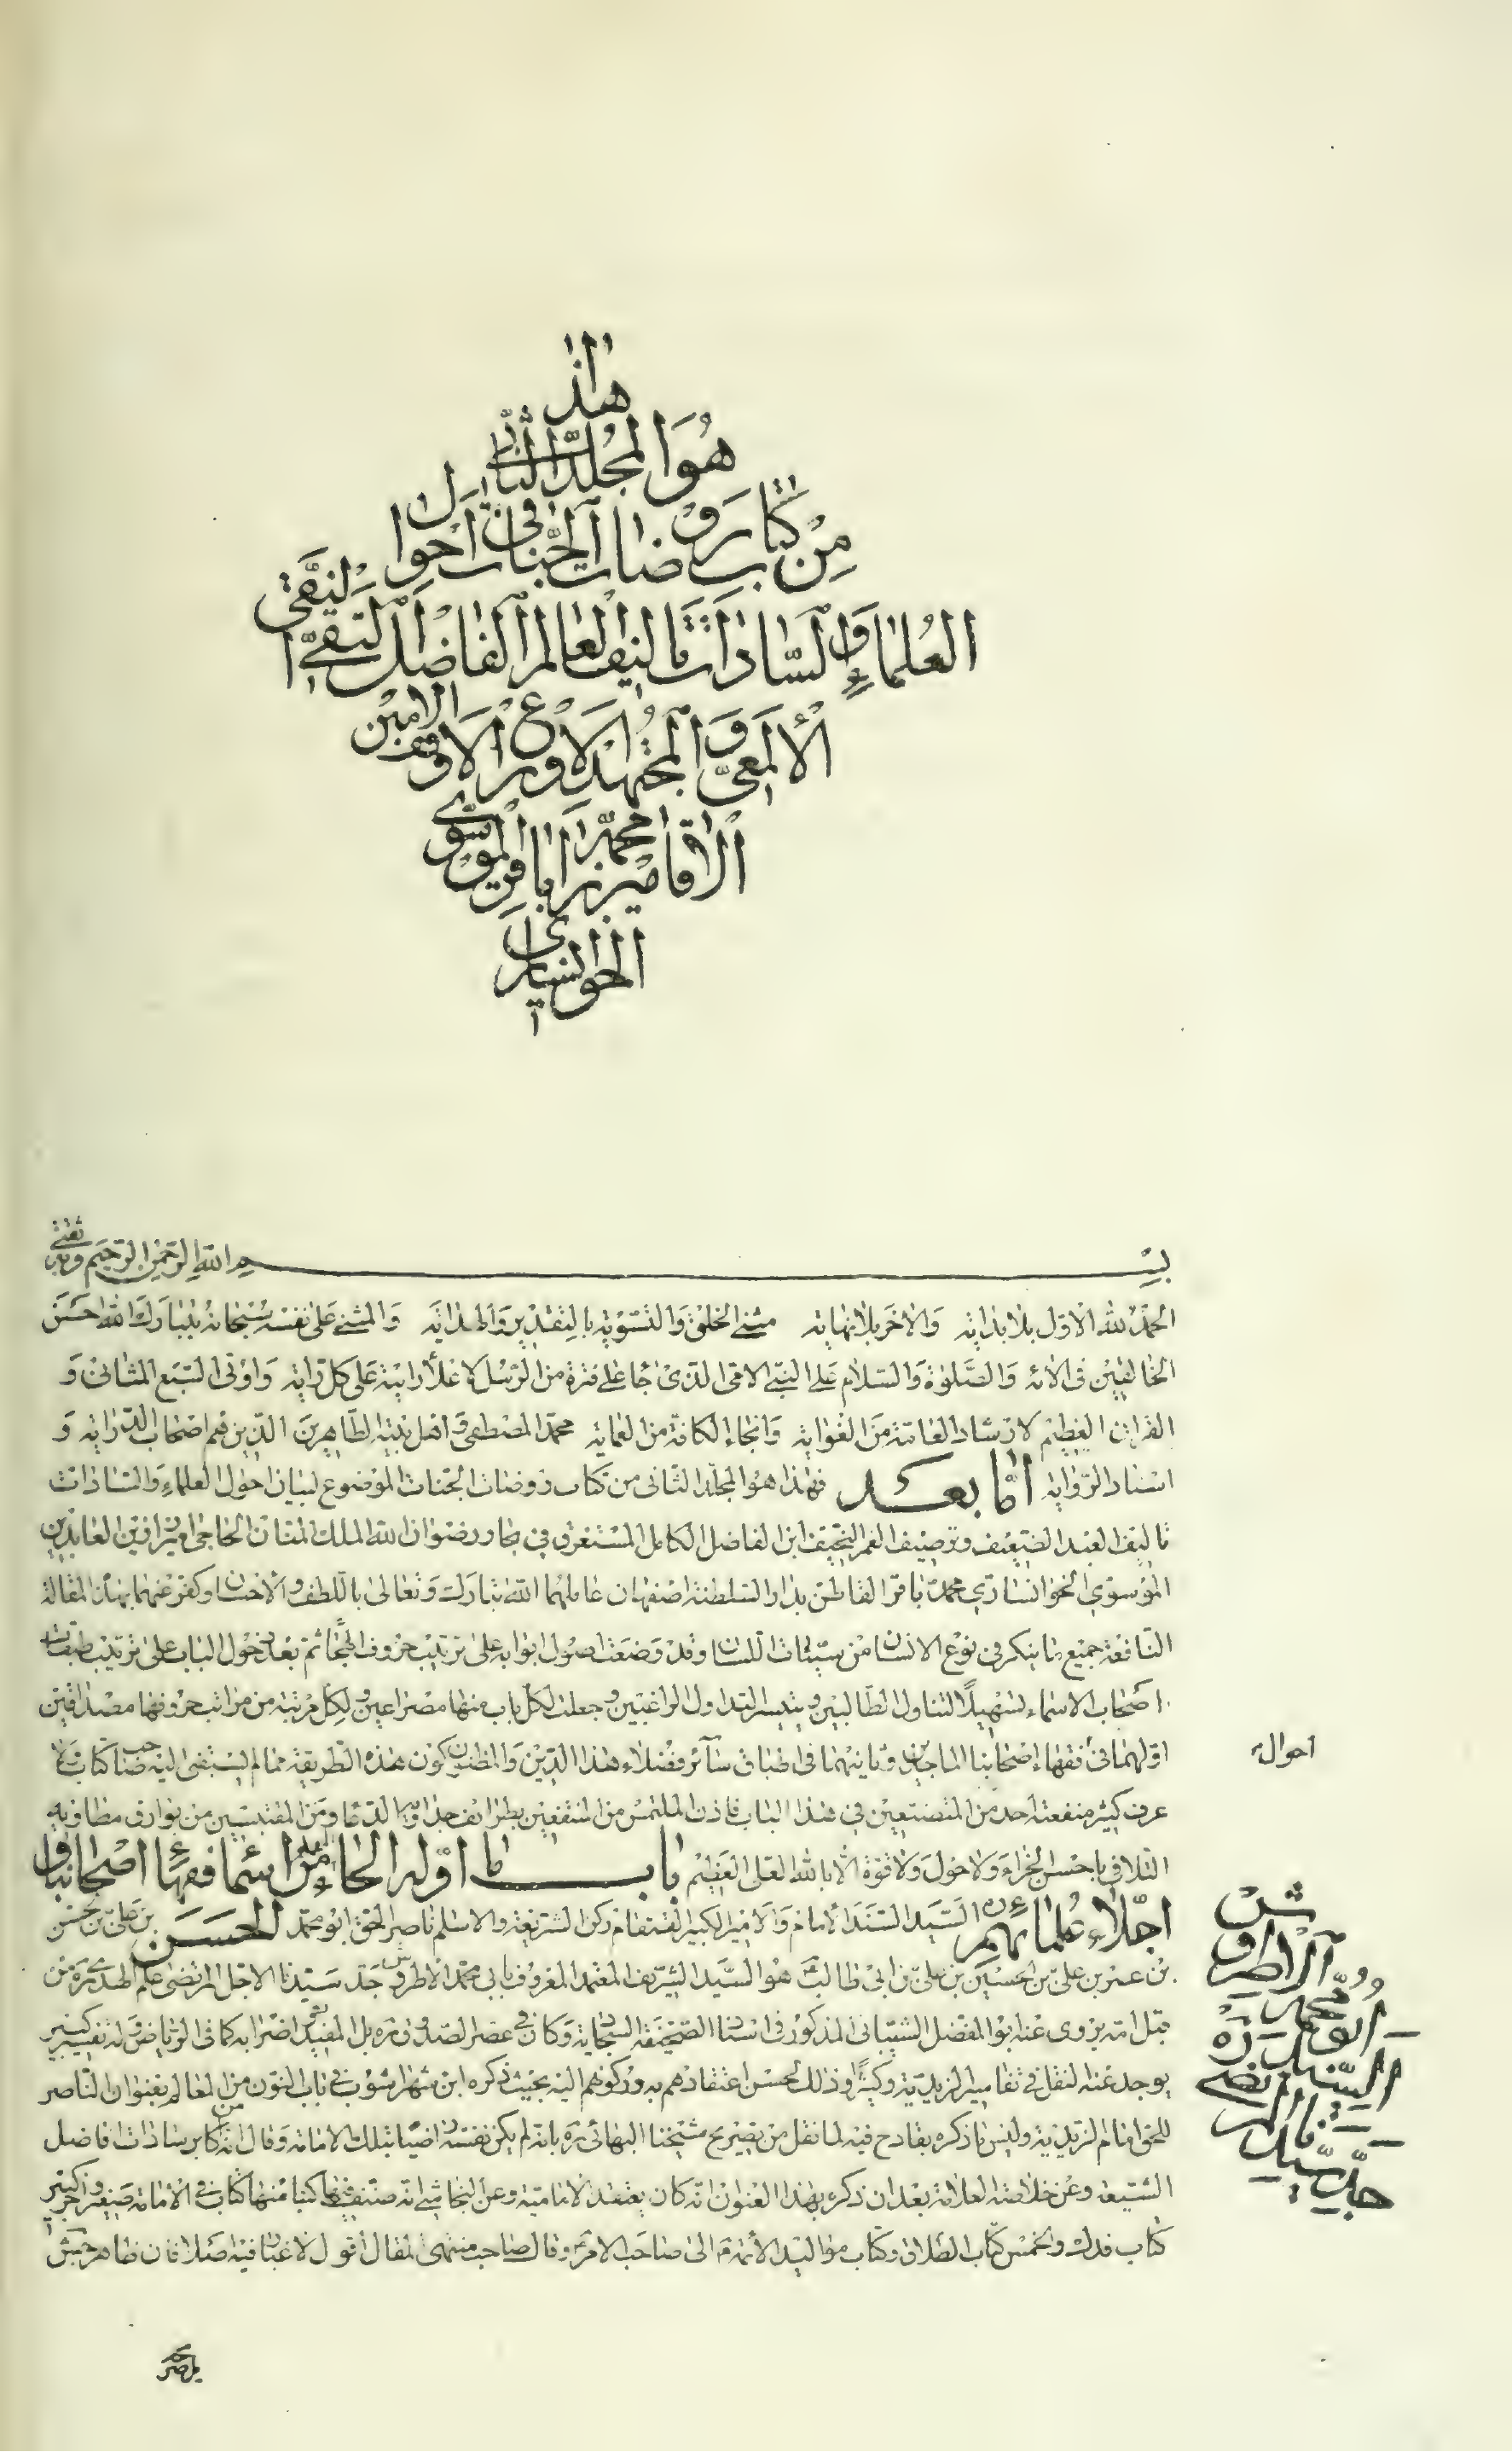 هذا
هو المجلد الثاني
من كتاب روضات الجنات في احوال
العلماء والسادات تاليف العالم الفاضل التقي النقي
الالمعي و المجتهد الاورع الاوفق الامين
الاقا ميرزا محمد باقر الموسوي
الخوانساري
بسم الله الرحمن الرحيم وبه ثقتي
الحمد لله الاول بلا بداية والاخر بلا نهاية مثني الخلق والتسوية بالتقدير والهداية والمثني على نفسه سبحانه بتبارك الله احسن
الخالقين في الاية والصلوة والسلام على النبي الامي الذي جاء على فترة من الرسل لاعلاء رايته على كل راية واوتي السبع المثاني و
القران العظيم لارشاد العامة من الغواية وانجاء الكافة من العماية محمد المصطفى و اهل بيته الطاهرين الذين هم اصحاب الدراية و
اسناد الرواية اما بعد فهذا هو المجلد الثاني من كتاب روضات الجنات الموضوع لبيان احوال العلماء والسادات
تاليف العبد الضعيف وترصيف النحيف ابن الفاضل الكامل المستغرق في بحار رضوان الله الملك المنان الحاجي ميرزا زين العابدين
الموسوي الخوانساري محمد باقر القاطن بدار السلطنة اصفهان عاملهما الله تبارك وتعالى باللطف والاحسان وكفر عنهما بهذه المقالة
النافعة جميع ما ينكر في نوع الانسان من سيئات اللسان وقد وضعت اصول ابوابه على ترتيب حروف الهجاء ثم بعد دخول الباب على ترتيب طبقات
اصحاب الاسماء تسهيلا لتناول الطالبين و تيسيرا لتداول الراغبين وجعلت لكل باب منها مصراعين ولكل مرتبة من مراتب حروفها مصداقين
اولهما في فقهاء اصحابنا الماجدين و ثانيهما في اطباق سائر فضلاء هذا الدين والمظنون كون هذه الطريقة مما لم يسبقني اليه صاحب كتاب ولا
عرف كثير منفعته احد من المتصنعين في هذا الباب فاذن الملتمس من المنتفعين بطرائف الدعاء ومن المقتبسين من بوارق مطاويه
التلافي باحسن الجزاء ولا حول ولا قوة الا بالله العلي العظيم باب ما اوله الحاء المهملة من اسماء فقهاء اصحابنا و
اجلاء علمائهم السيد السند الامام والامير الكبير القمقام ركن الشريعة والاسلام ناصر الحق ابو محمد الحسن بن علي بن حسن
بن عمر بن علي بن الحسين بن علي بن ابي طالب هو السيد الشريف المعتمد المعروف بابي محمد الاطروش جد سيدنا الاجل المرتضى علم الهدى ره من
قبل امه يروي عنه ابو المفضل الشيباني المذكور في اسناد الصحيفة السجادية وكان في عصر الصدوق ره بل المفيد و اضرابه كما في الرياض وله تفسير كبير
يوجد عنه النقل في تفاسير الزيدية كثيرا وذلك لحسن اعتقادهم به وركونهم اليه بحيث ذكره ابن شهراشوب في باب النون من المعالم بعنوان الناصر
للحق امام الزيدية وليس ما ذكره بقادح فيه لما نقل من تصريح شيخنا البهائي ره بانه لم يكن نفسه راضيا بتلك الامامة وقال انه من اكابر سادات افاضل
الشيعة وعن خلاصة العلامة بعد ان ذكره بهذا العنوان انه كان يعتقد الامامية وعن النجاشي انه صنف فيها كتبا منها كتاب في الامامة صغير واخر كبير
كتاب فدك والخمس كتاب الطلاق وكتاب مواليد الائمة الى صاحب الامر ع وقال صاحب منتهى المقال اقول لا غبار فيه اصلا فان ظاهر جش
احواله
شرح
الاطروش
ابو محمد
السيد ره
المرتضى
جد سيدنا